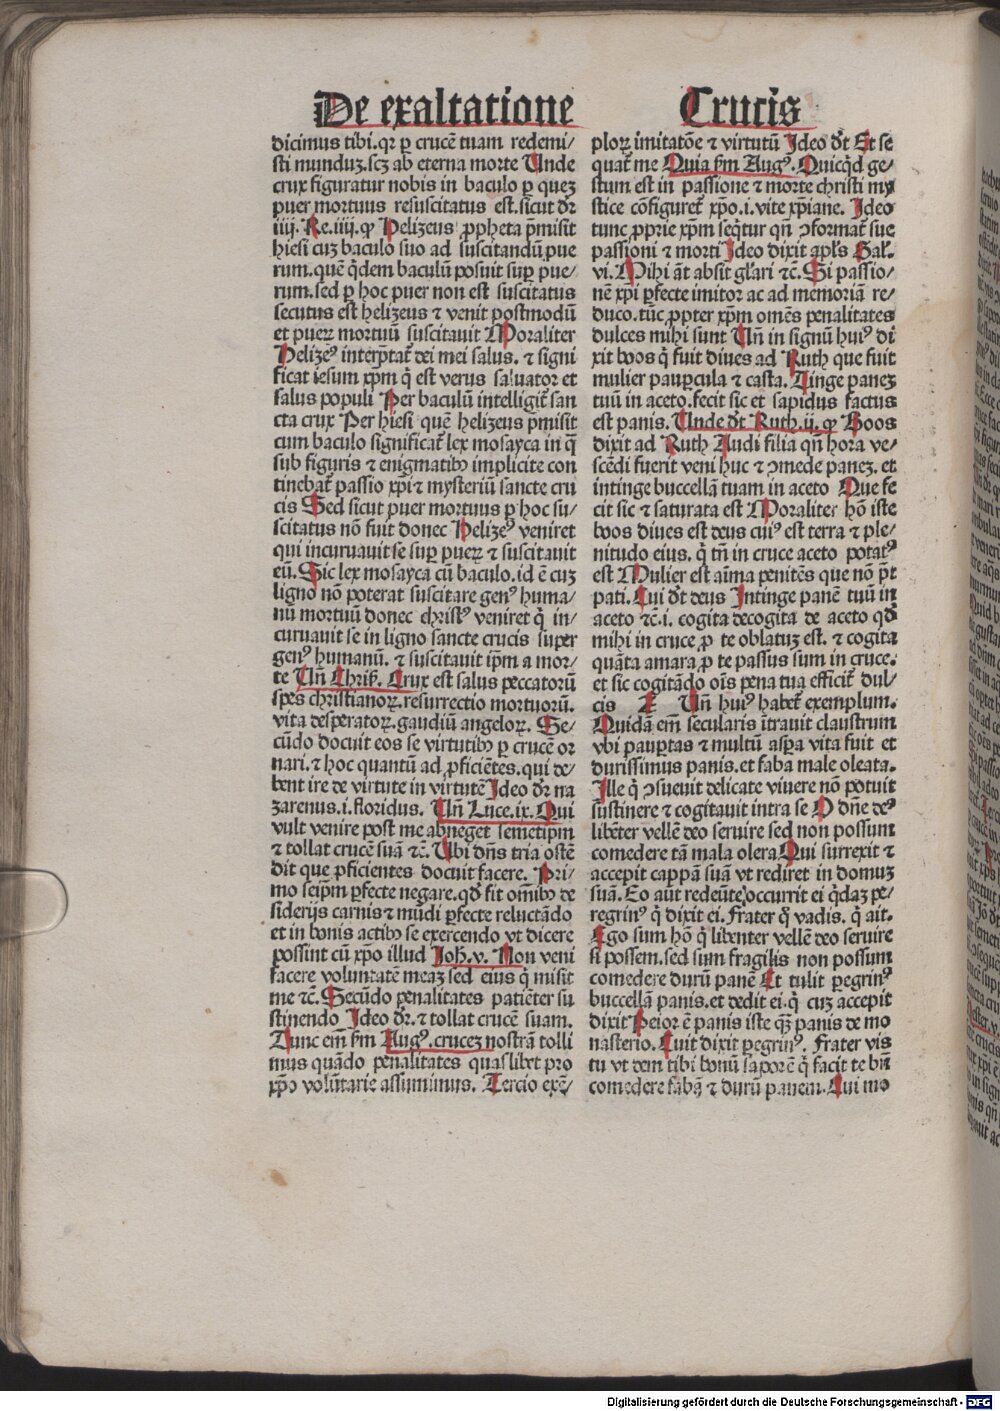 De exaltatione Crucis
dicimus tibi. qꝛ ꝑ crucē tuam redemi/
sti munduꝫ. scꝫ ab eterna morte Unde
crux figuratur nobis in baculo ꝑ queꝫ
puer mortuus resuscitatus est. sicut dr̄
iiij. Re. iiij. ꝙ Helizeus ꝓpheta p̄misit
hiesi cuꝫ baculo suo ad suscitandū pue
rum. quē q̇dem baculū posuit suꝑ pue/
rum. sed ꝑ hoc puer non est suscitatus
secutus est helizeus ⁊ venit postmodū
et pueꝝ mortuū suscitauit Moraliter
Helizeꝰ interp̄tat̄ dei mei salus. ⁊ signi
ficat iesum xp̄m q̇ est verus saluator et
salus populi Per baculū intelligit̄ san
cta crux Per hiesi quē helizeus p̄misit
cum baculo significat̄ lex mosayca in q̄
sub figuris ⁊ enigmatibꝰ implicite con
tinebat̄ passio xp̄i ⁊ mysteriū sancte cru
cis Sed sicut puer mortuus ꝑ hoc su/
scitatus nō fuit donec Helizeꝰ veniret
qui incuruauit se suꝑ pueꝝ ⁊ suscitauit
eū. Sic lex mosayca cū baculo. id ē cuꝫ
ligno nō poterat suscitare genꝰ huma/
nū mortuū donec christꝰ veniret q̇ in/
curuauit se in ligno sancte crucis super
genꝰ humanū. ⁊ suscitauit ip̄m a mor/
te Un̄ Chris. Crux est salus peccatorū
spes christianoꝝ. resurrectio mortuorū.
vita desperatoꝝ. gaudiū angeloꝝ. Se/
cūdo docuit eos se virtutibꝰ ꝑ crucē or
nari. ⁊ hoc quantū ad ꝓficiētes. qui de/
bent ire de virtute in virtutē Ideo dr̄ na
zarenus. i. floridus. Un̄ Luce. ix. Qui
vult venire post me abneget semetip̄m
⁊ tollat crucē suā ⁊c̄. Ubi dn̄s tria ostē
dit que ꝓficientes docuit facere. Pri/
mo seip̄m ꝑfecte negare. qd̄ fit om̄ibꝰ de
siderijs carnis ⁊ mūdi ꝑfecte reluctādo
et in bonis actibꝰ se exercendo vt dicere
possint cū xp̄o illud Joh. v. Non veni
facere voluntatē meaꝫ sed eius q̇ misit
me ⁊c̄. Secūdo penalitates patiēter su
stinendo Ideo dr̄. ⁊ tollat crucē suam.
Tunc em̄ fm̄ Augꝰ. cruceꝫ nostrā tolli
mus quādo penalitates quaslibet pro
xp̄o volūtarie assumimus. Tercio exē/
ploꝝ imitatōe ⁊ virtutū Ideo dr̄t Et se
quat̄ me Quia fm̄ Augꝰ. Quicq̇d ge/
stum est in passione ⁊ morte christi my
stice cōfiguret̄ xp̄o. i. vite xp̄iane. Ideo
tunc ꝓprie xp̄m seq̇tur qn̄ ꝯformat̄ sue
passioni ⁊ morti Ideo dixit apl̄s Gal̄.
vi. Mihi āt absit gl̄ari ⁊c̄. Si passio/
nē xp̄i ꝑfecte imitor ac ad memoriā re/
duco. tūc ꝓpter xp̄m omēs penalitates
dulces mihi sunt Un̄ in signū huiꝰ di
xit boos q̇ fuit diues ad Ruth que fuit
mulier pauꝑcula ⁊ casta. Tinge paneꝫ
tuū in aceto. fecit sic et sapidus factus
est panis. Unde dr̄t Ruth. ij. ꝙ Boos
dixit ad Ruth Audi filia qn̄ hora ve/
scēdi fuerit veni huc ⁊ ꝯmede paneꝫ. et
intinge buccellā tuam in aceto Que fe
cit sic ⁊ saturata est Moraliter hō iste
boos diues est deus cuiꝰ est terra ⁊ ple/
nitudo eius. q̇ tn̄ in cruce aceto potatꝰ
est Mulier est aīma penitēs que nō p̄t
pati. Cui dr̄t deus Intinge panē tuū in
aceto ⁊c̄. i. cogita decogita de aceto qd̄
mihi in cruce ꝓ te oblatuꝫ est. ⁊ cogita
quāta amara ꝓ te passus sum in cruce.
et sic cogitādo oīs pena tua efficit̄ dul/
cis Un̄ huiꝰ habet̄ exemplum.
Quidā em̄ secularis ītrauit claustrum
vbi pauꝑtas ⁊ multū asꝑa vita fuit et
durissimus panis. et faba male oleata.
Ille q̇ ꝯsueuit delicate viuere nō potuit
sustinere ⁊ cogitauit intra se O dn̄e deꝰ
libēter vellē deo seruire sed non possum
comedere tā mala olera Qui surrexit ⁊
accepit cappā suā vt rediret in domuꝫ
suā. Eo aūt redeūte occurrit ei q̇daꝫ pe/
regrinꝰ q̇ dixit ei. Frater q̊ vadis. q̇ ait.
Ego sum hō q̇ libenter vellē deo seruire
si possem. sed sum fragilis non possum
comedere durū panē Et tulit peregrinꝰ
buccellā panis. et dedit ei. q̇ cuꝫ accepit
dixit Peior ē panis iste qꝫ panis de mo
nasterio. Cui dixit peregrinꝰ. Frater vis
tu vt dem tibi bonū saporē q̇ facit te bn̄
comedere fabā ⁊ durū panem. Qui mo
Digitalisierung gefördert durch die Deutsche Forschungsgemeinschaft - DFG